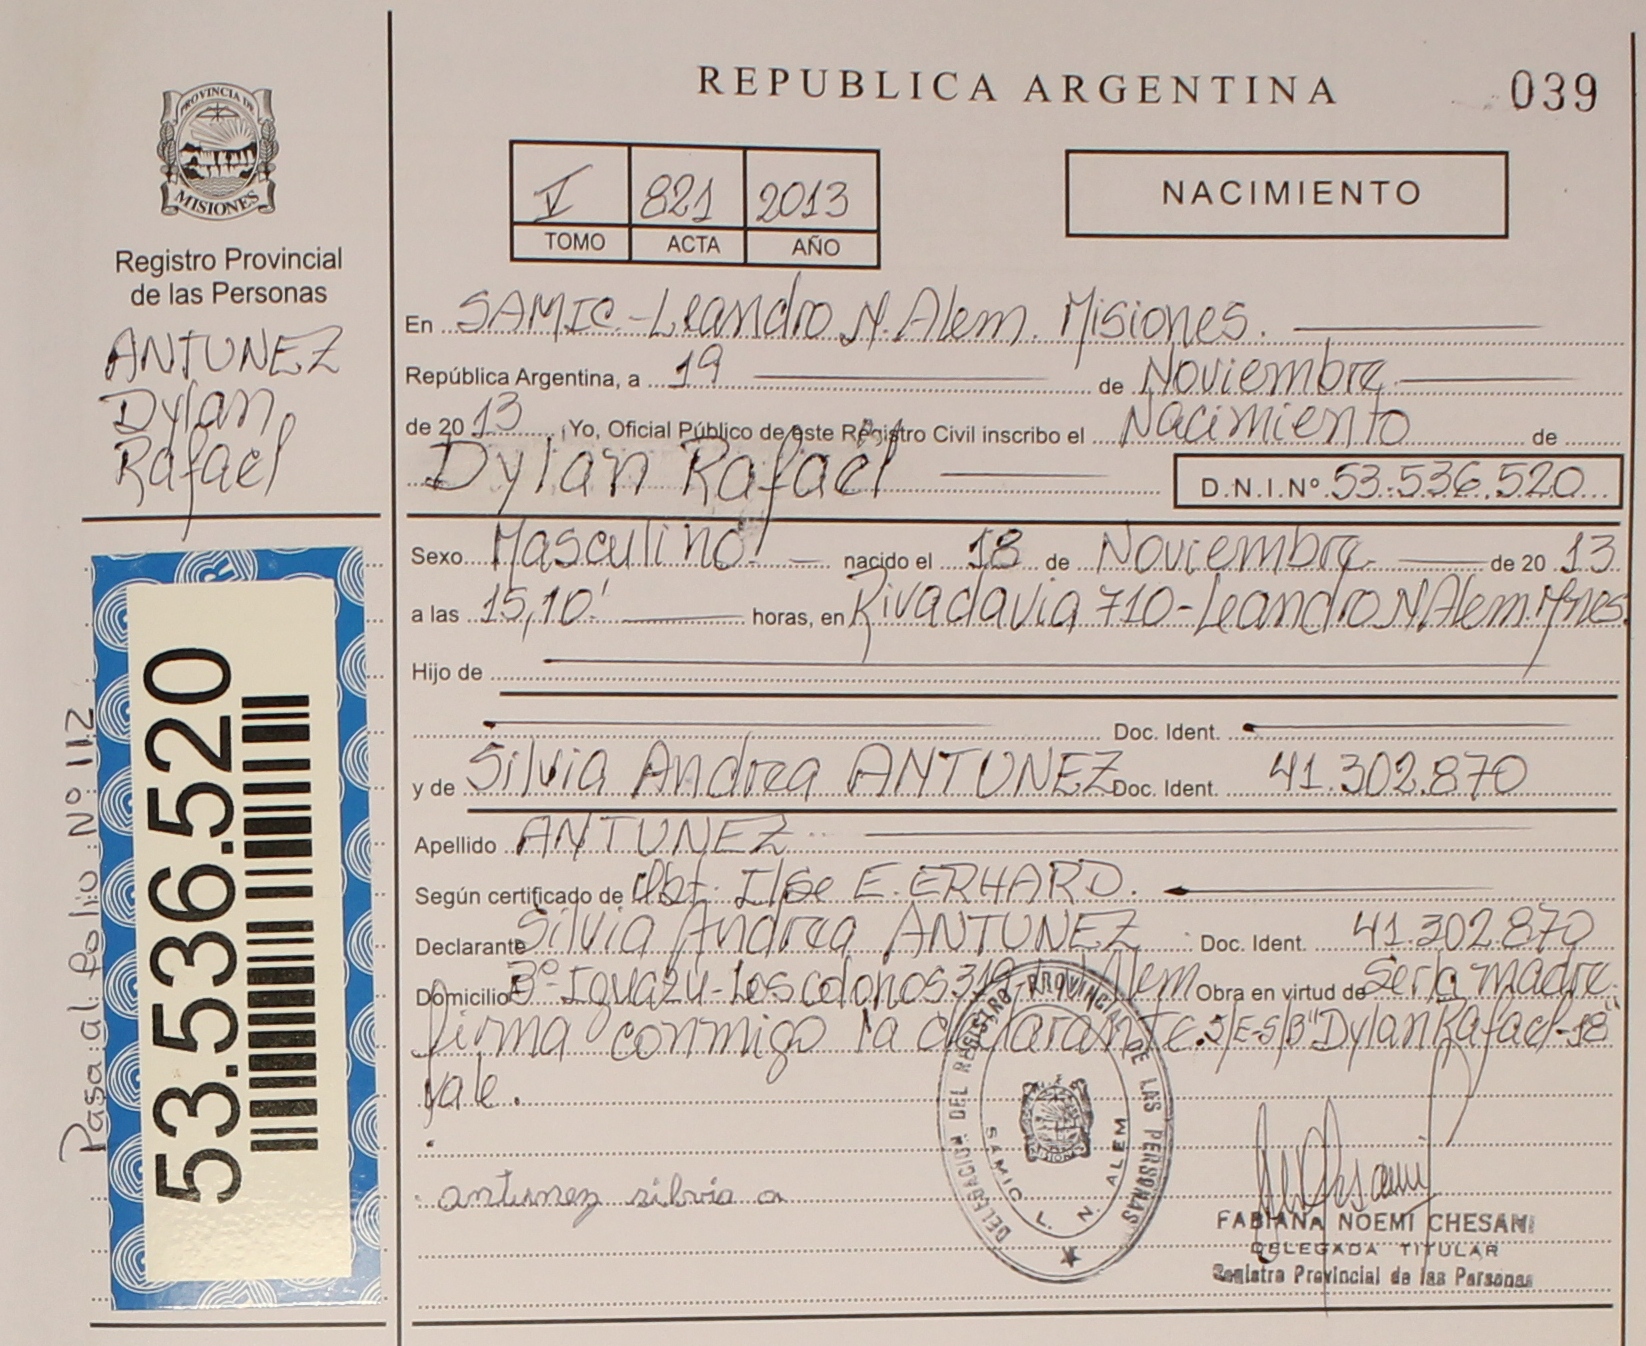 REPUBLICA ARGENTINA
039
PROVINCIA DE
MISIONES
Registro Provincial
de las Personas
ANTUNEZ
Dylan
Rafael
V 821 2013
TOMO ACTA AÑO
NACIMIENTO
En SAMIC.-Leandro N. Alem. Misiones.
República Argentina, a 19 de Noviembre
de 2013 Yo, Oficial Público de este Registro Civil inscribo el Nacimiento de
Dylan Rafael D.N.I.Nº 53.536.520
Sexo Masculino nacido el 18 de Noviembre de 2013
a las 15,10' horas, en Rivadavia 710-Leandro N Alem.Mnes.
Hijo de
Doc. Ident.
y de Silvia Andrea ANTUNEZ Doc. Ident. 41.302.870
Apellido ANTUNEZ
Según certificado de Obt. Ilse E. ERHARD.
Declarante Silvia Andrea ANTUNEZ Doc. Ident. 41.302.870
Domicilio Bº Iguazu-Los colonos 319- Alem Obra en virtud de Ser la madre
firma conmigo la declarante. S/E-S/B"Dylan Rafael-18"
Vale.
antunez silvia a
DELEGACION DEL REGISTRO PROVINCIAL DE LAS PERSONAS
SAMIC L. N. ALEM
FABIANA NOEMI CHESANI
DELEGADA TITULAR
Registro Provincial de las Personas
53.536.520
Pasa al folio Nº 112